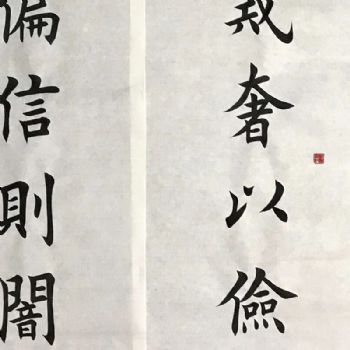 戒奢以儉
偏信則闇